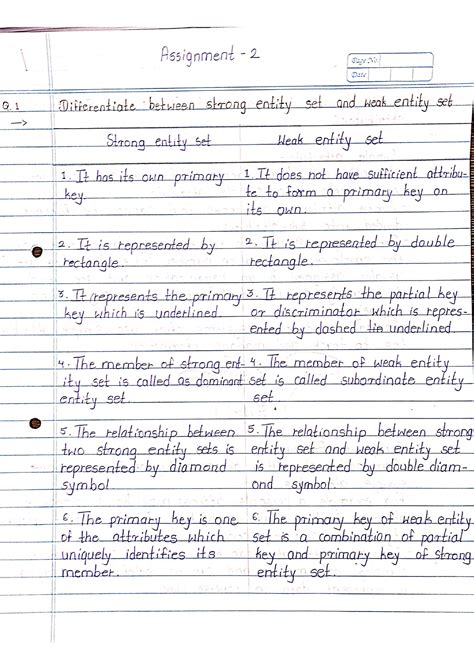 Assignment - 2
Page No.
Date
Q.1 Differentiate between strong entity set and weak entity set
→
Strong entity set
Weak entity set
1. It has its own primary
key.
1. It does not have sufficient attribu-
te to form a primary key on
its own.
2. It is represented by
rectangle.
2. It is represented by double
rectangle.
3. It represents the primary
key which is underlined
3. It represents the partial key
or discriminator which is repres-
ented by dashed underlined.
4. The member of strong ent-
ity set is called as dominant
entity set.
4. The member of weak entity
set is called subordinate entity
set.
5. The relationship between
two strong entity sets is
represented by diamond
symbol
5. The relationship between strong
entity set and weak entity set
is represented by double diam-
ond symbol.
6. The primary key is one
of the attributes which
uniquely identifies its
member.
6. The primary key of weak entity
set is a combination of partial
key and primary key of strong
entity set.